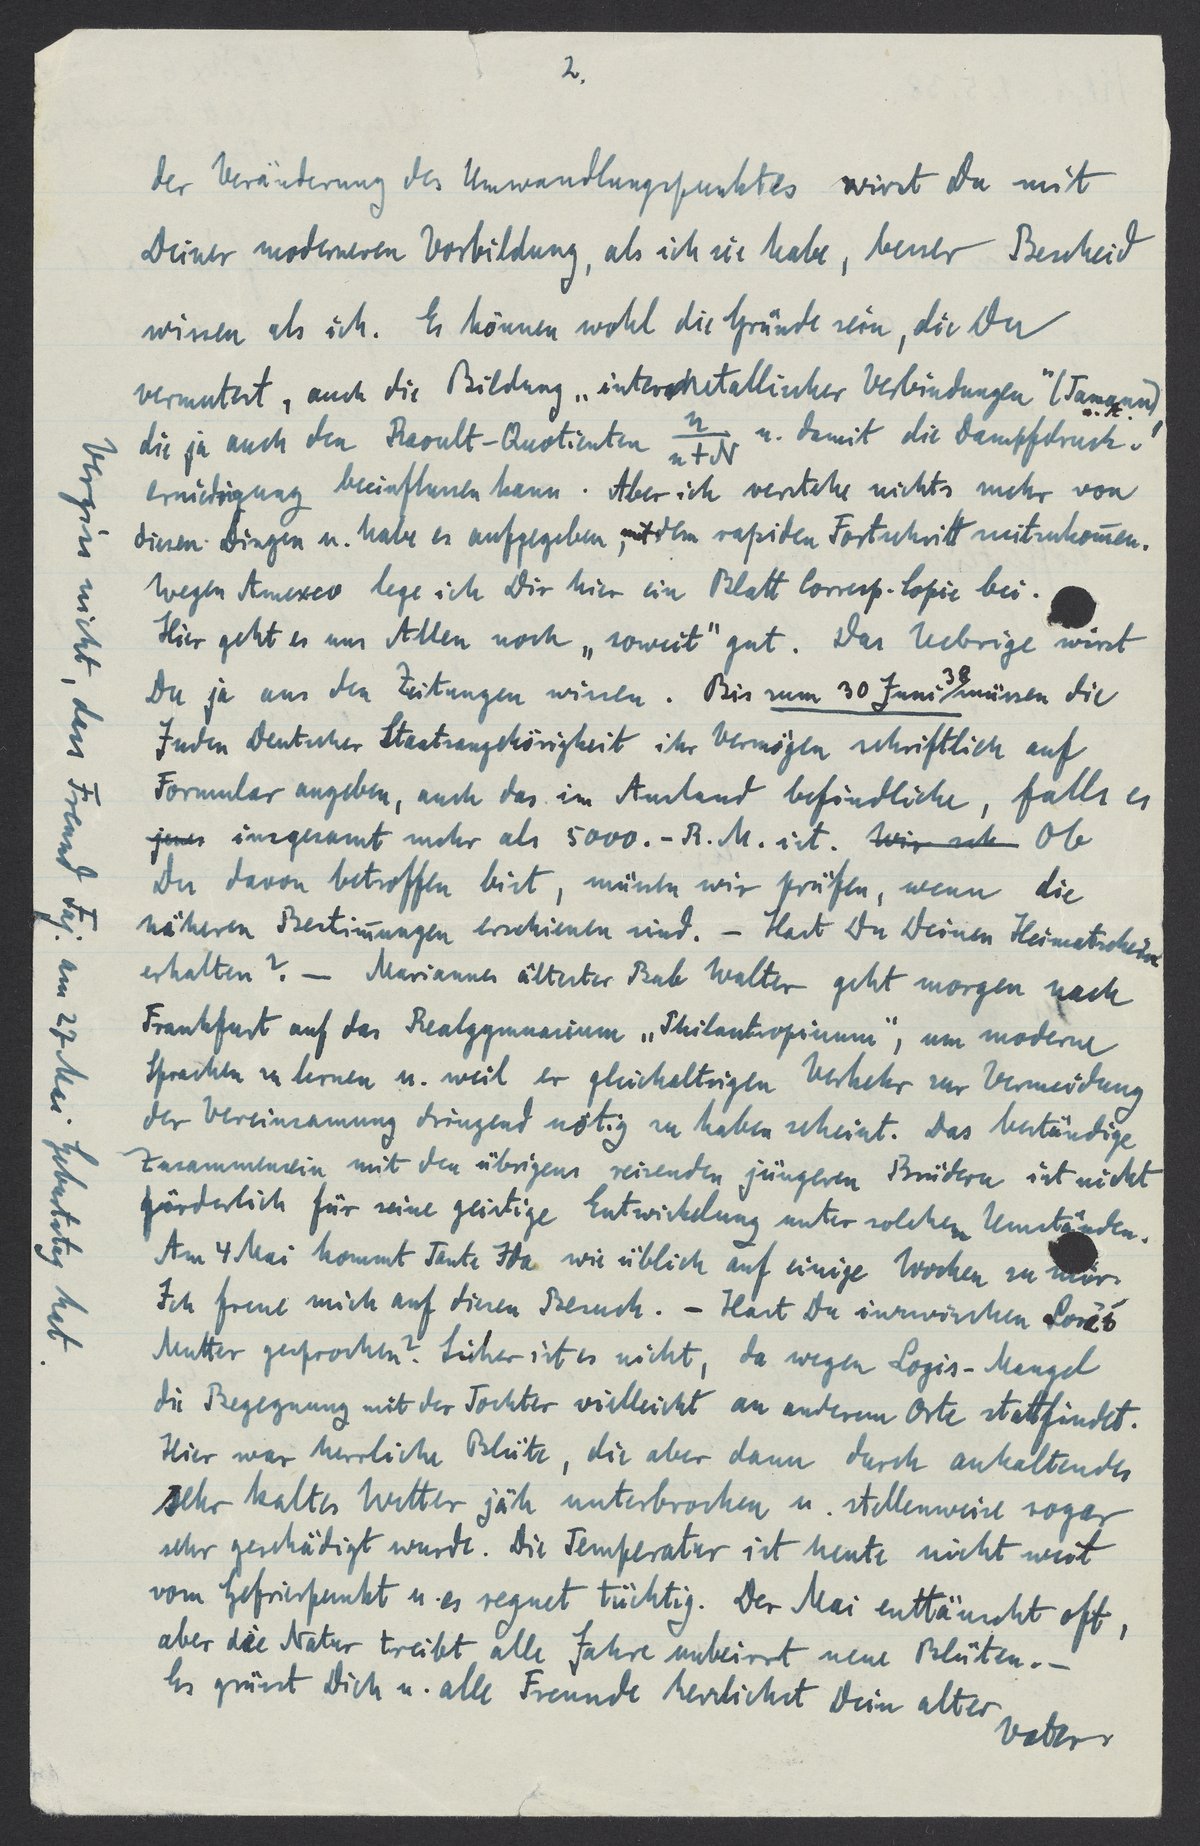 2.
der Veränderung des Umwandlungspunktes wirst Du mit
Deiner moderneren Vorbildung, als ich sie habe, besser Bescheid
wissen als ich. Es können wohl die Gründe sein, die Du
vermutest, auch die Bildung „intermetallischer Verbindungen" (Tamann),
die ja auch den Raoult-Quotienten n/n+N u. damit die Dampfdruck-
erniedrigung beeinflussen kann. Aber ich verstehe nichts mehr von
diesen Dingen u. habe es aufgegeben, mit dem rapiden Fortschritt mitzukom̄en.
Wegen Amexco lege ich Dir hier ein Blatt Corresp.-Copie bei.
Hier geht es uns Allen noch „soweit" gut. Das Uebrige wirst
Du ja aus den Zeitungen wissen. Bis zum 30 Juni 38 müssen die
Juden Deutscher Staatsangehörigkeit ihr Vermögen schriftlich auf
Formular angeben, auch das im Ausland befindliche, falls es
jenes insgesamt mehr als 5000.- R.M. ist. Wir Ob
Du davon betroffen bist, müssen wir prüfen, wenn die
näheren Bestim̄ungen erschienen sind. – Hast Du Deinen Heimatschein
erhalten? – Mariannes ältester Bub Walter geht morgen nach
Frankfurt auf das Realgymnasium „Philantropinum", um moderne
Sprachen zu lernen u. weil er gleichaltrigen Verkehr zur Vermeidung
der Vereinsamung dringend nötig zu haben scheint. Das beständige
Zusammensein mit den übrigens reizenden jüngeren Brüdern ist nicht
förderlich für seine geistige Entwickelung unter solchen Umständen.
Am 4 Mai kommt Tante Ida wie üblich auf einige Wochen zu mir.
Ich freue mich auf diesen Besuch. – Hast Du inzwischen
Mutter gesprochen? Sicher ist es nicht, da wegen Logis-Mangel
die Begegnung mit der Tochter vielleicht an anderem Orte stattfindet.
Hier war herrliche Blüte, die aber dann durch anhaltendes
sehr kaltes Wetter jäh unterbrochen u. stellenweise sogar
sehr geschädigt wurde. Die Temperatur ist heute nicht weit
vom Gefrierpunkt u. es regnet tüchtig. Der Mai enttäuscht oft,
aber die Natur treibt alle Jahre unbeirrt neue Blüten.–
Es grüsst Dich u. alle Freunde herzlichst Dein alter
Vater
Vergiss nicht, dass Freund Faj. am 27 Mai Geburtstag hat.